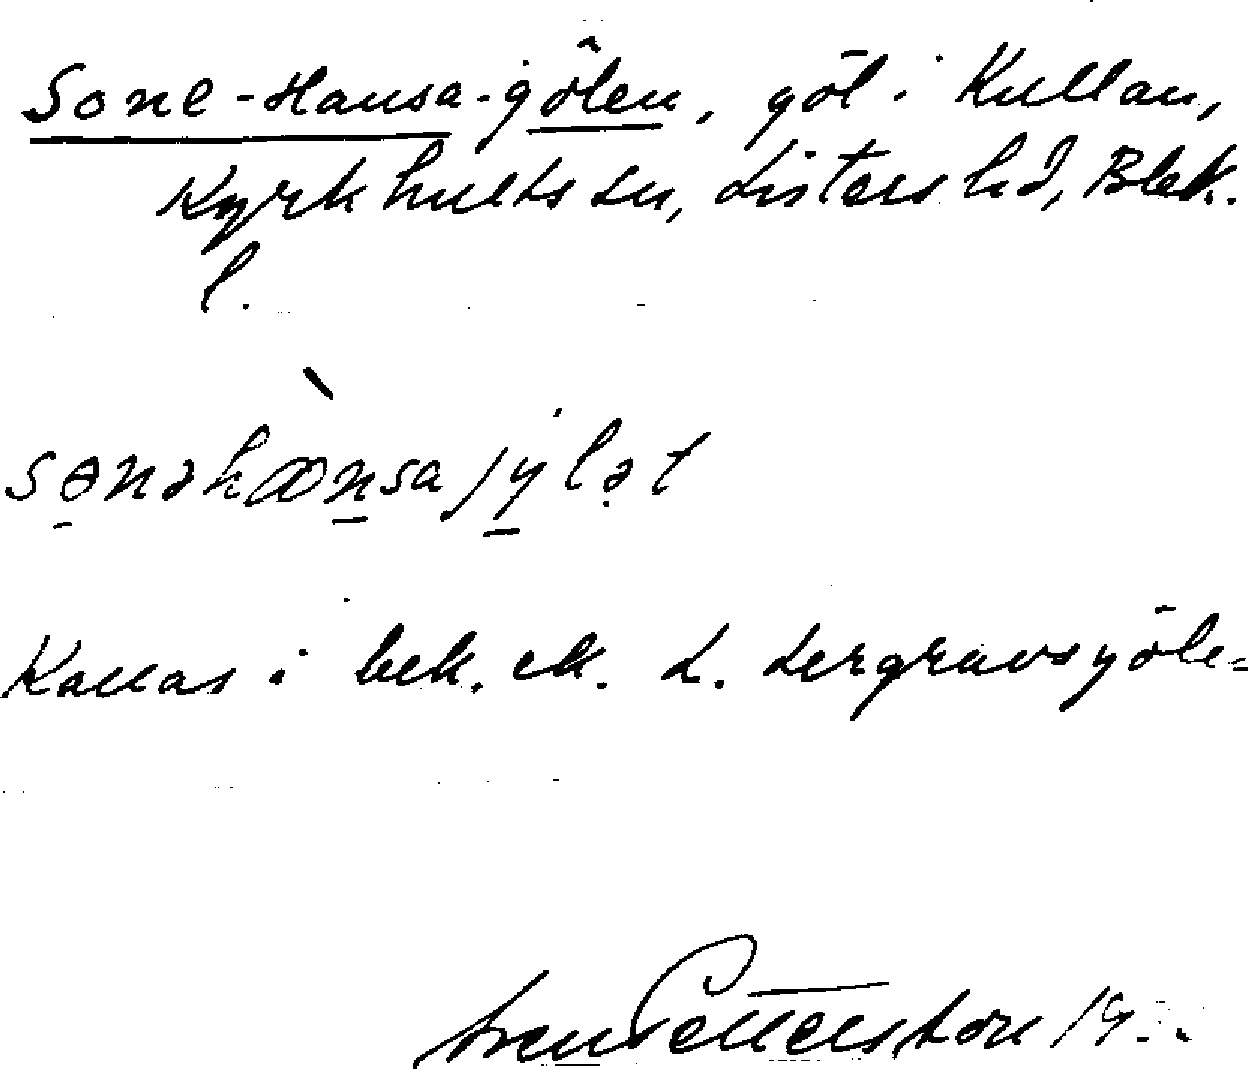 Sone-Hansa-gölen, göl i Kullan,
Kyrkhults sn, Listers hd, Blek.
l.
sɵnəhɑnsajylət
Kallas i bek. ell. L. Lergravsgöle-
Sven Pettersson 19..